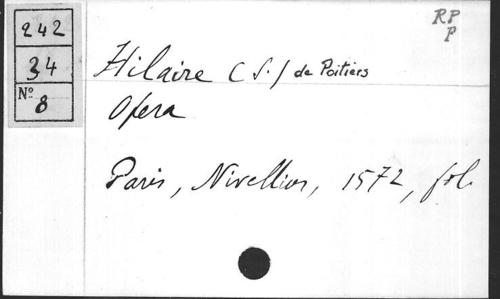 242
34
Nº
8
RP
P
Hilaire (S.) de Poitiers
Opera
Paris, Nivellius, 1572, fol.